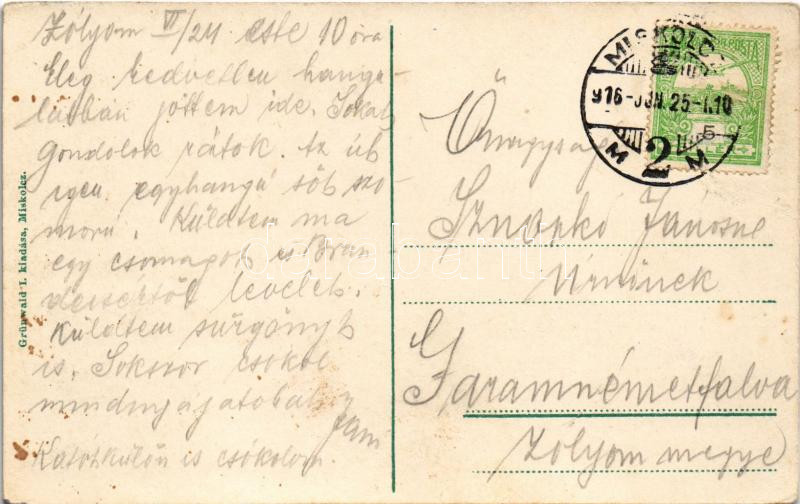 Zólyom VI/24 este 10 óra
Elég kedvetlen hangu-
latban jöttem ide. Sokat
gondolok rátok. Az út
igen egyhangú sőt szo-
morú. Küldtem ma
egy csomagot is
levelet.
Küldtem sürgönyt
is. Sokszor csókol
mindnyájatokat
Jani
Katót külön is csókolom.
Grünwald I. kiadása, Miskolcz.
MISKOLC
916-JUN.25-
M 2 M
POSTA
Önagysága
Sznapkó Jánosné
Úrnőnek
Garamnémetfalva
Zólyom megye
darabanth